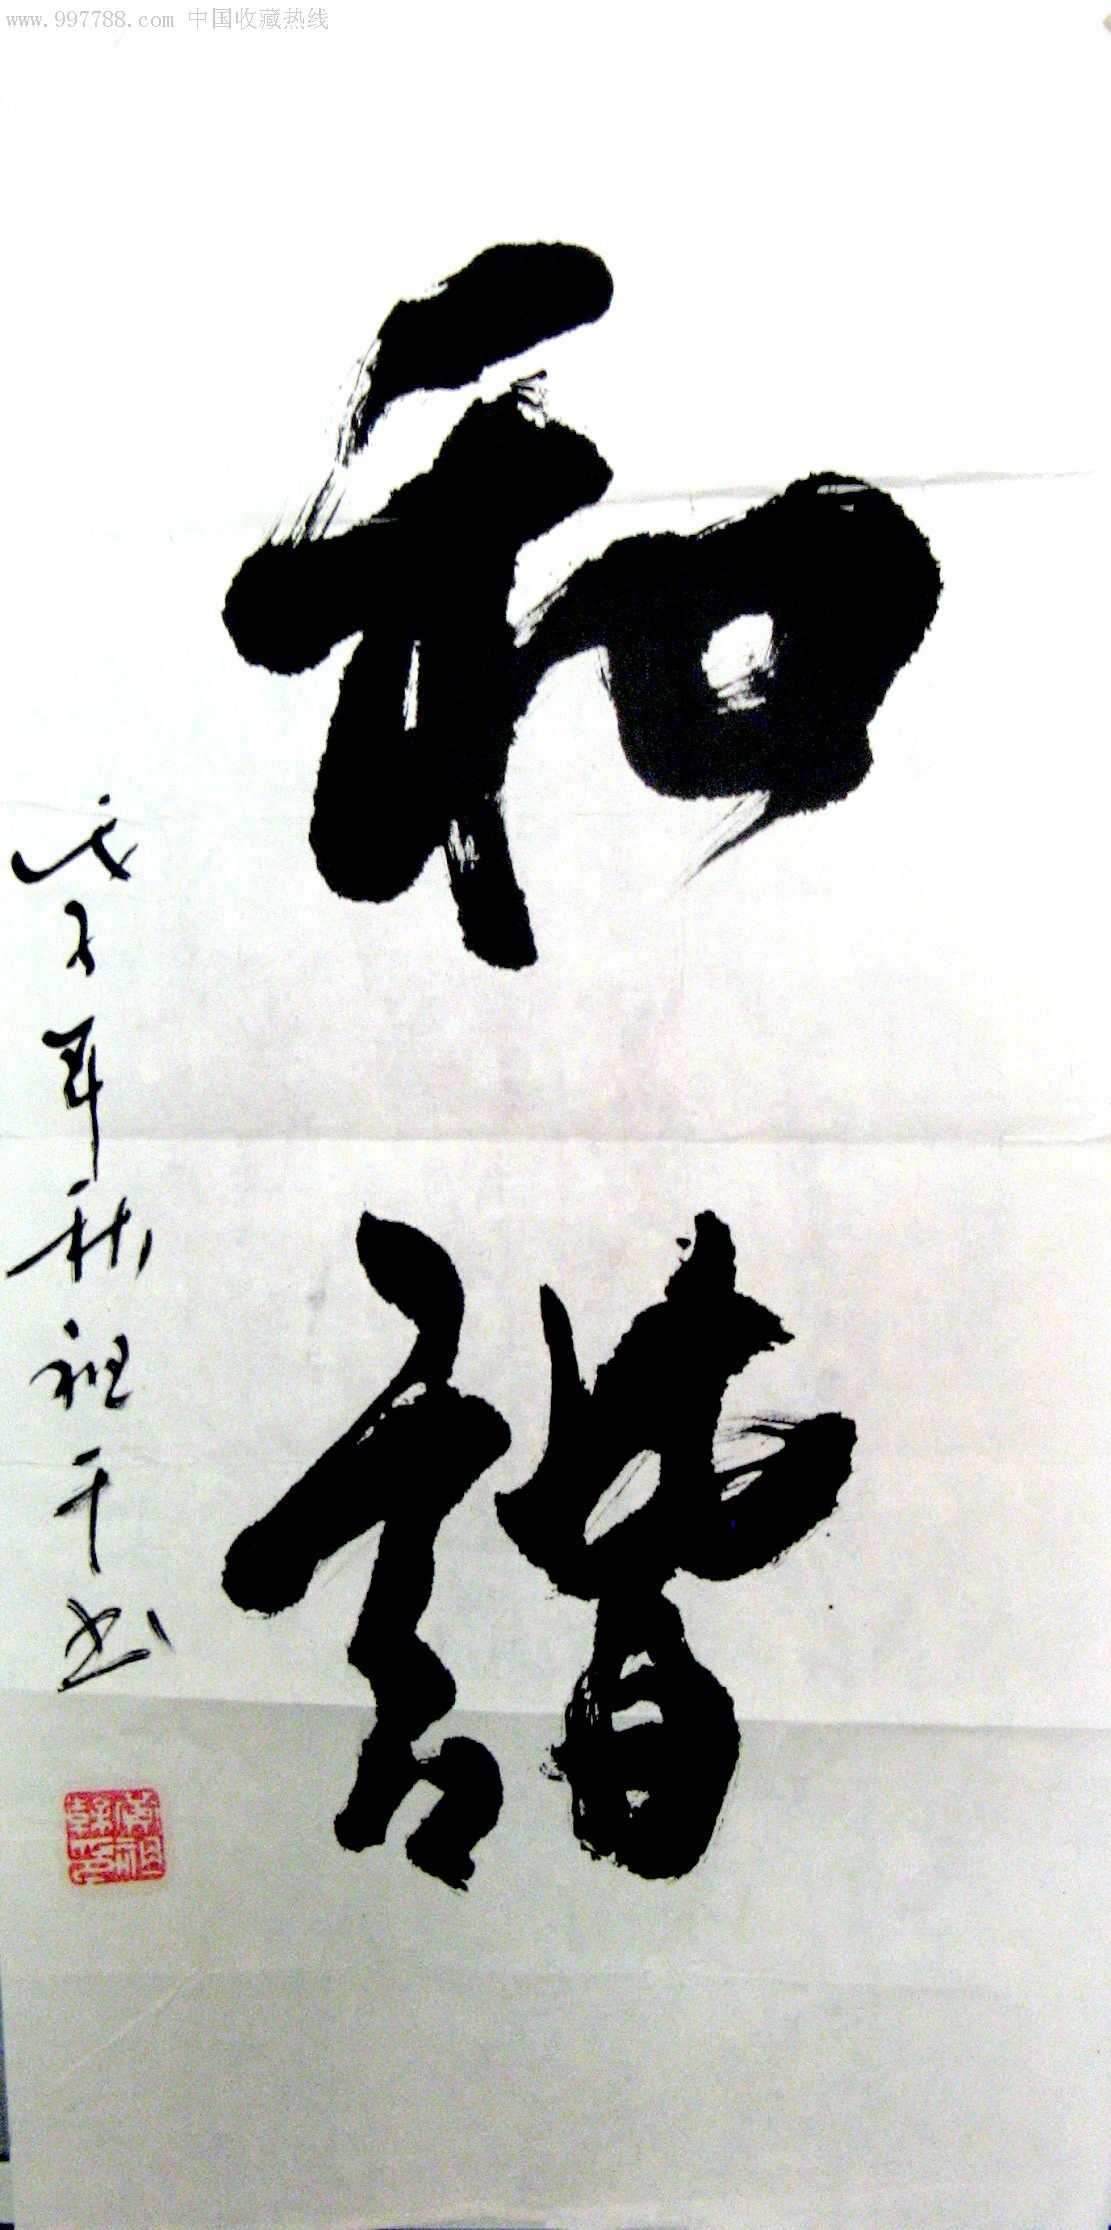 www.997788.com 中国收藏热线
和
諧
戊子年秋祖千书